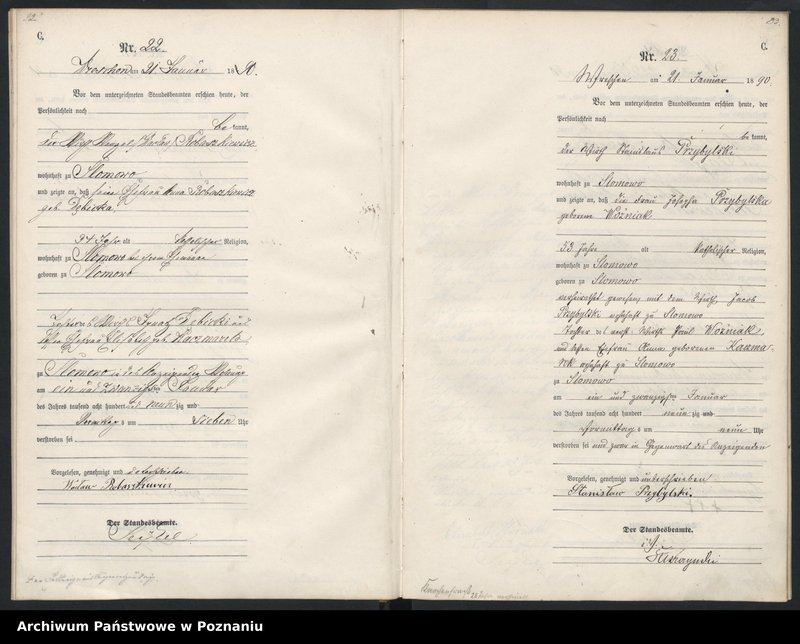 22
C.
Nr. 22.
Wreschen am 21 Januar 1890.
Vor dem unterzeichneten Standesbeamten erschien heute, der
Persönlichkeit nach
be kannt,
der
wohnhaft zu Slomowo
und zeigte an, daß seine Ehefrau Anna
geb. Dębicka,
34 Jahr alt katholischer Religion,
wohnhaft zu Slomowo bei ihrem
geboren zu Slomowo
Tochter des Ignaz Dębicki und
dessen Ehefrau geb. Kaczmarek
zu Slomowo in des Anzeigenden Wohnung
am ein und zwanzigsten Januar
des Jahres tausend acht hundert und neun zig und
Vormittag s um Sieben Uhr
verstorben sei
Vorgelesen, genehmigt und unterschrieben
Der Standesbeamte.
Seidel
23.
C.
Nr. 23.
Wreschen am 21. Januar 1890.
Vor dem unterzeichneten Standesbeamten erschien heute, der
Persönlichkeit nach
be kannt,
der Wirth Stanislaus Przybylski
wohnhaft zu Slomowo
und zeigte an, daß die Frau Josepha Przybylska
geborene Woźniak
53 Jahre alt katholischer Religion,
wohnhaft zu Slomowo
geboren zu Slomowo
verheirathet gewesen mit dem Wirth Jacob
Przybylski wohnhaft zu Slomowo
Tochter des verst. Wirth Paul Woźniak
und dessen Ehefrau geborenen Kaczma
rek wohnhaft zu Slomowo
zu Slomowo
am ein und zwanzigsten Januar
des Jahres tausend acht hundert neun zig und
Vormittag s um neun Uhr
verstorben sei und zwar in Gegenwart des Anzeigenden
Vorgelesen, genehmigt und unterschrieben
Stanisław Przybylski.
Der Standesbeamte.
Archiwum Państwowe w Poznaniu